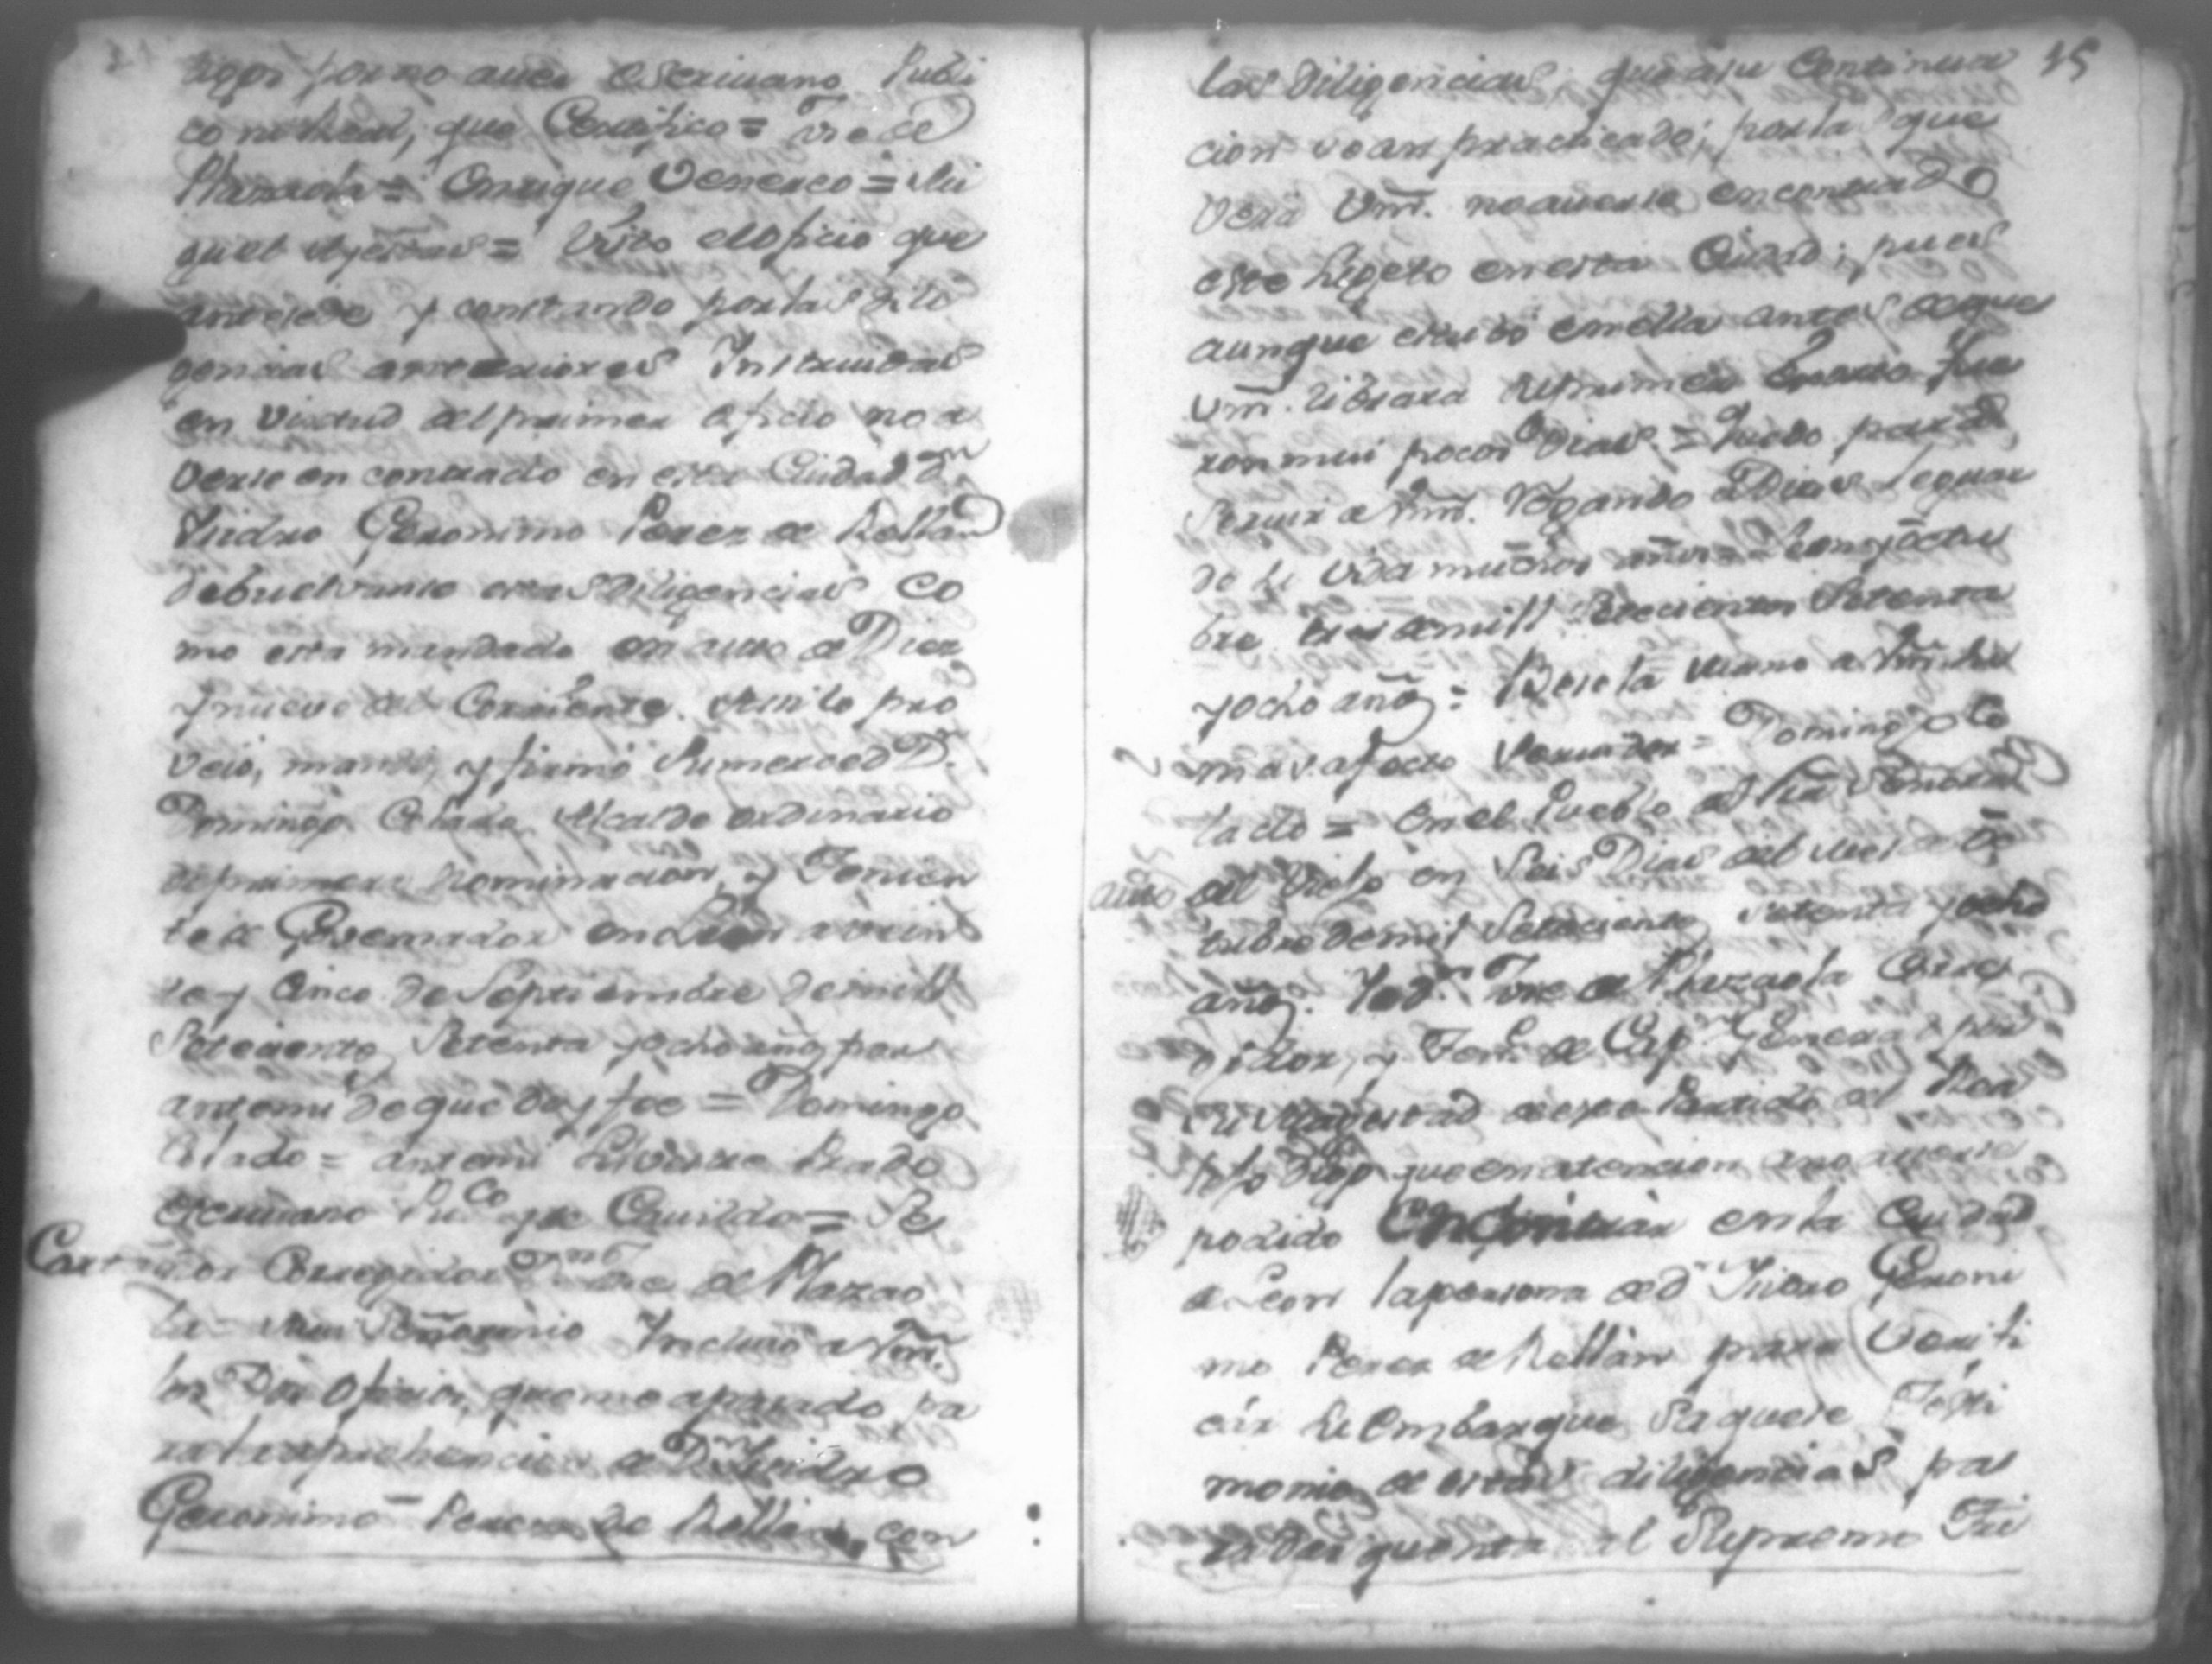 tigos por no auer escriuano Publi
co ni Real, que Certifico = Vre de
Plazaola = Enrique Venerco = Mi
guel = Visto el oficio que
antesede y constando por las dili
gencias anteriores Instruidas
en Virtud del primer oficio no a
verse encontrado en esta Ciudad Dn
Ysidro Geronimo Perez de Rollan
debuelvanse estas Diligencias co
mo esta mandado en auto de Diez
y nueve del Corriente. Asi lo pro
veio, mando, y firmó Sumerced D.
Domingo Calado Alcalde ordinario
de primera Nominacion, y Tenien
te de Governador en León a vein
te y Cinco de Septiembre de mill
Setecientos Setenta y ocho años por
antemi de que doy fee = Domingo
Calado = antemi Silvestre Prado
escriuano Puco y de Cauildo = Se
Carta ñor Corregidor Dn Vre de Plazao
la = Mui Señor mio Incluio a Vm.
los Dos Oficios, que me a pasado pa
ra la aprehencion de Dn Ysidro
Geronimo Perez de Rollan, con
45
las Diligencias, que a su Continua
cion se an practicado; por la que
verá Vm. no auerse encontrado
este Sugeto en esta Ciudad; pues
aunque estubo en ella antes de que
Vm. librara el primer fue
ron mui pocos Dias. = Quedo para
Seruir a Vm. Rogando a Dios Segual
de su vida muchos años = Leon y octu
bre tres de mill Setecientos Setenta
y ocho años = Besa la mano a Vm. su
mas afecto Seruidor = Domingo Ca
lado = En el Pueblo
auto del Viejo en Seis Dias del mes de oc
tubre de mil Setecientos Setenta y ocho
años. Yo Dn Vre de Plazaola Corre
gidor, y Tente de Capn General por
su Magestad de este Partido del Rea
lejo Digo que en atencion ano auerse
podido encontrar en la Ciudad
de Leon la persona de Dn Ysidro Geroni
mo Perez de Rollan para Verifi
cár su embarque Saquese Testi
monio de estas diligencias pa
ra dar quenta al Supremo Tri